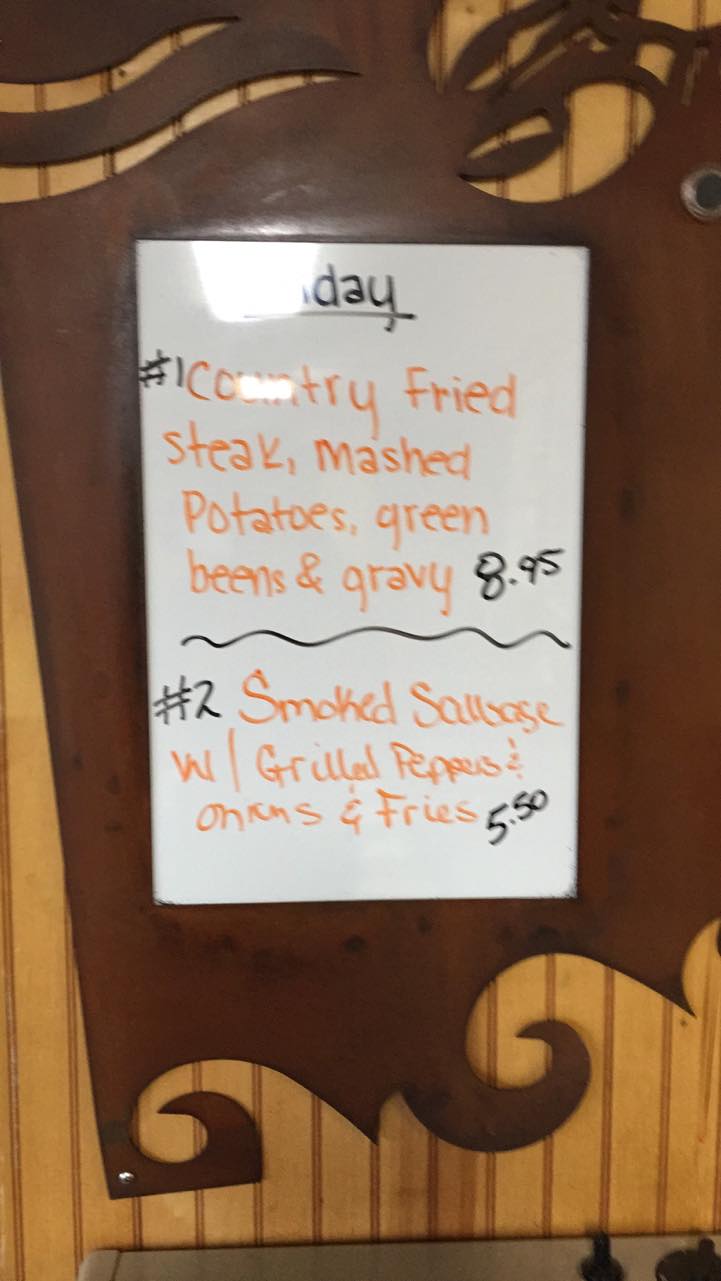 #1 Country Fried
steak, mashed
Potatoes, green
beens & gravy 8.95
#2 Smoked Sausage
w/ Grilled Peppers &
onions & Fries 5.50